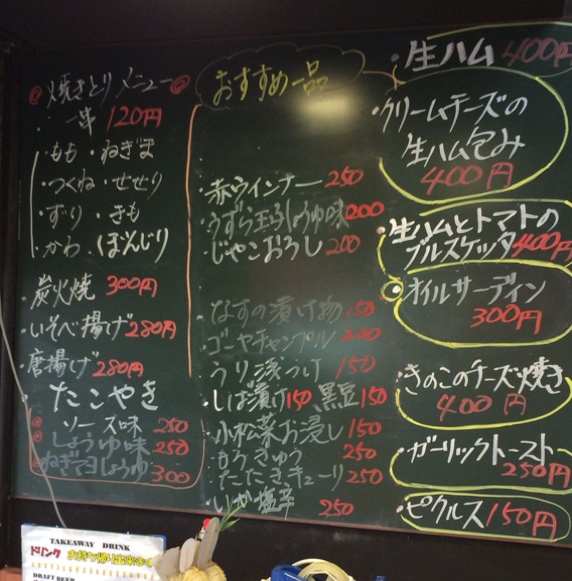 焼きとりメニュー
一串 120円
・もも ・ねぎま
・つくね ・せせり
・ずり ・きも
・かわ ・ぼんじり
・炭火焼 300円
・いそべ揚げ 280円
・唐揚げ 280円
たこやき
ソース味 250
しょうゆ味 250
ねぎマヨしょうゆ 300
おすすめ一品
・赤ウインナー 250
・うずら玉子しょうゆ味 200
・じゃこおろし 200
・なすの漬け物 150
・ゴーヤチャンプル 200
・うり浅つけ 150
・しば漬け 150 黒豆 150
・小松菜お浸し 150
・もろきゅう 250
・たたきキューリ 250
・いか塩辛 250
・生ハム 400円
・クリームチーズの
生ハム包み
400円
・生ハムとトマトの
ブルスケッタ 400円
・オイルサーディン
300円
・きのこのチーズ焼き
400円
・ガーリックトースト
250円
・ピクルス 150円
TAKEAWAY DRINK
ドリンク お持ち帰り出来ます
DRAFT BEER